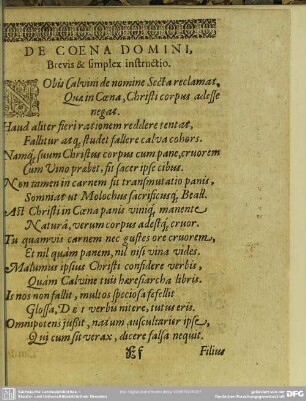 DE COENA DOMINI,
Brevis & simplex instructio.
NObis Calvini de nomine Secta reclamat,
Quæ in Cœna, Christi corpus adesse
negat.
Haud aliter fieri rationem reddere tentat,
Fallitur atq; studet fallere calva cohors.
Namq; suum Christus corpus cum pane, cruorem
Cum Vino præbet, fit sacer ipse cibus.
Non tamen in carnem fit transmutatio panis,
Somniat ut Molochus sacrificusq; Beall.
Ast Christi in Cœna panis viniq; manente
Naturâ, verum corpus adestq; cruor.
Tu quamvis carnem nec gustes ore cruorem,
Et nil quàm panem, nil nisi vina vides.
Malumus ipsius Christi confidere verbis,
Quàm Calvine tuis hæresiarcha libris.
Is nos non fallit, multos speciosa fefellit
Glossa, DEI verbu nitere, tutus eris.
Omnipotens jussit, natum auscultarier ipse,
Qui cum sit verax, dicere falsa nequit.
Ff
Filius